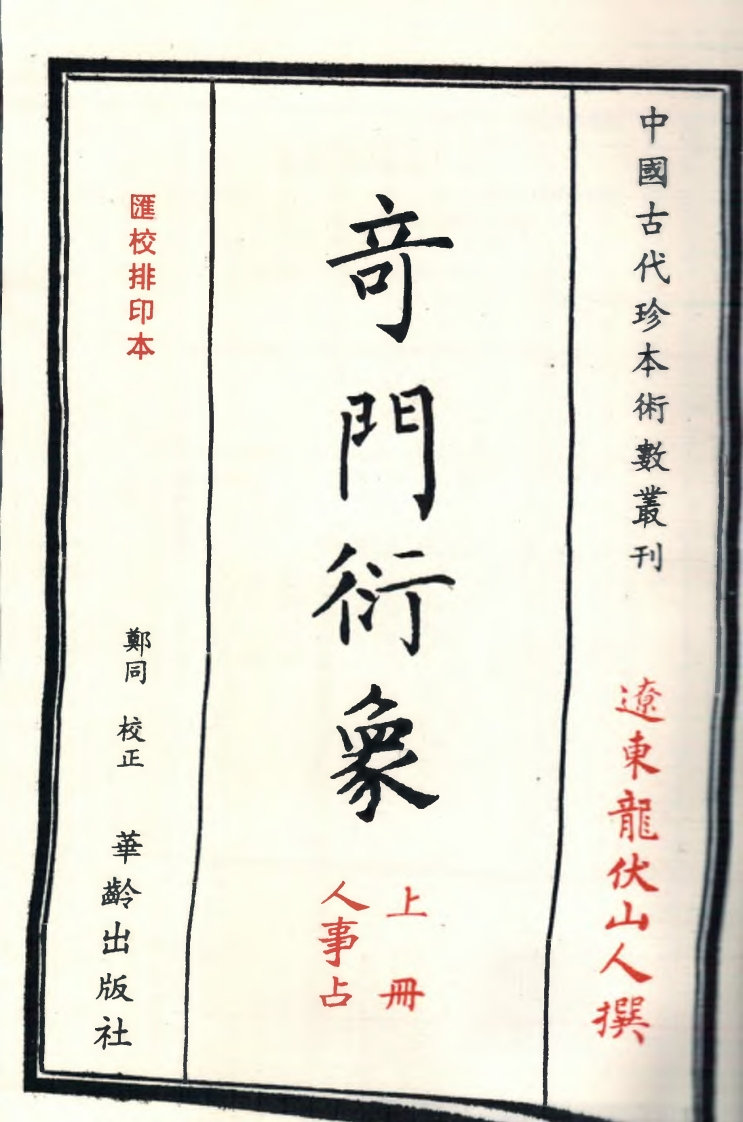 中國古代珍本術數叢刊
遼東龍伏山人撰
奇門衍象
上冊
人事占
匯校排印本
鄭同 校正
華齡出版社